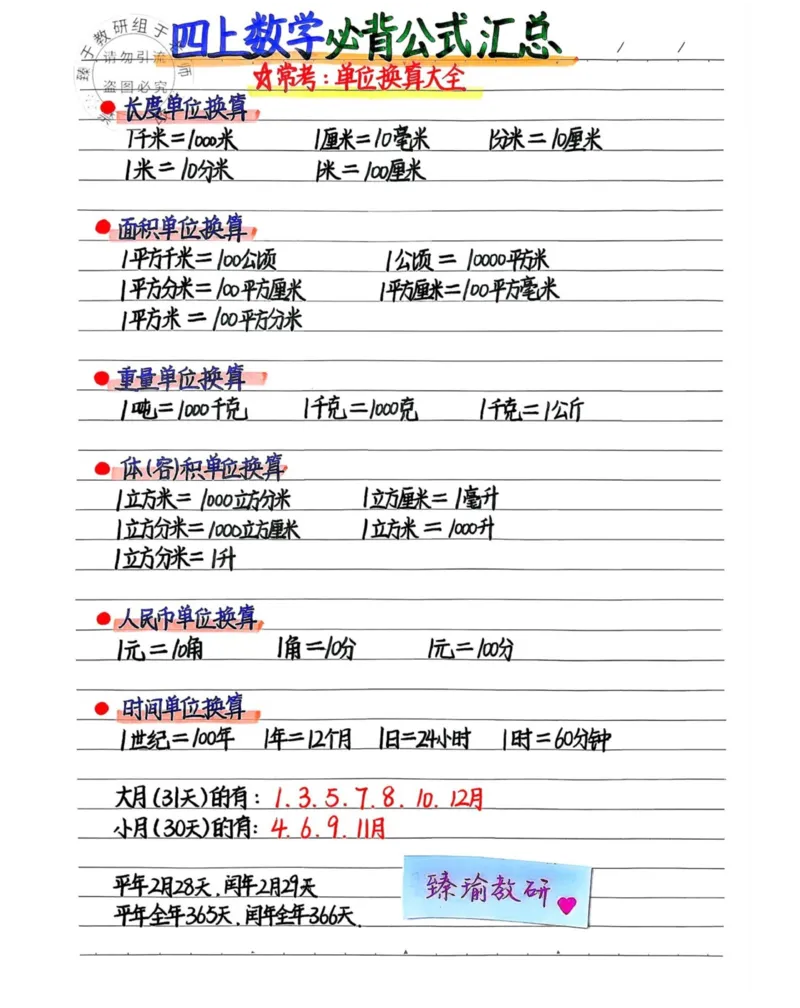 四上数学必背公式汇总
☆常考：单位换算大全
请勿引流
盗图必究
长度单位换算
1千米=1000米 1厘米=10毫米 1分米=10厘米
1米=10分米 1米=100厘米
面积单位换算
1平方千米=100公顷 1公顷=10000平方米
1平方分米=100平方厘米 1平方厘米=100平方毫米
1平方米=100平方分米
重量单位换算
1吨=1000千克 1千克=1000克 1千克=1公斤
体(容)积单位换算
1立方米=1000立方分米 1立方厘米=1毫升
1立方分米=1000立方厘米 1立方米=1000升
1立方分米=1升
人民币单位换算
1元=10角 1角=10分 1元=100分
时间单位换算
1世纪=100年 1年=12个月 1日=24小时 1时=60分钟
大月(31天)的有：1.3.5.7.8.10.12月
小月(30天)的有：4.6.9.11月
平年2月28天.闰年2月29天
平年全年365天.闰年全年366天.
臻瑜教研